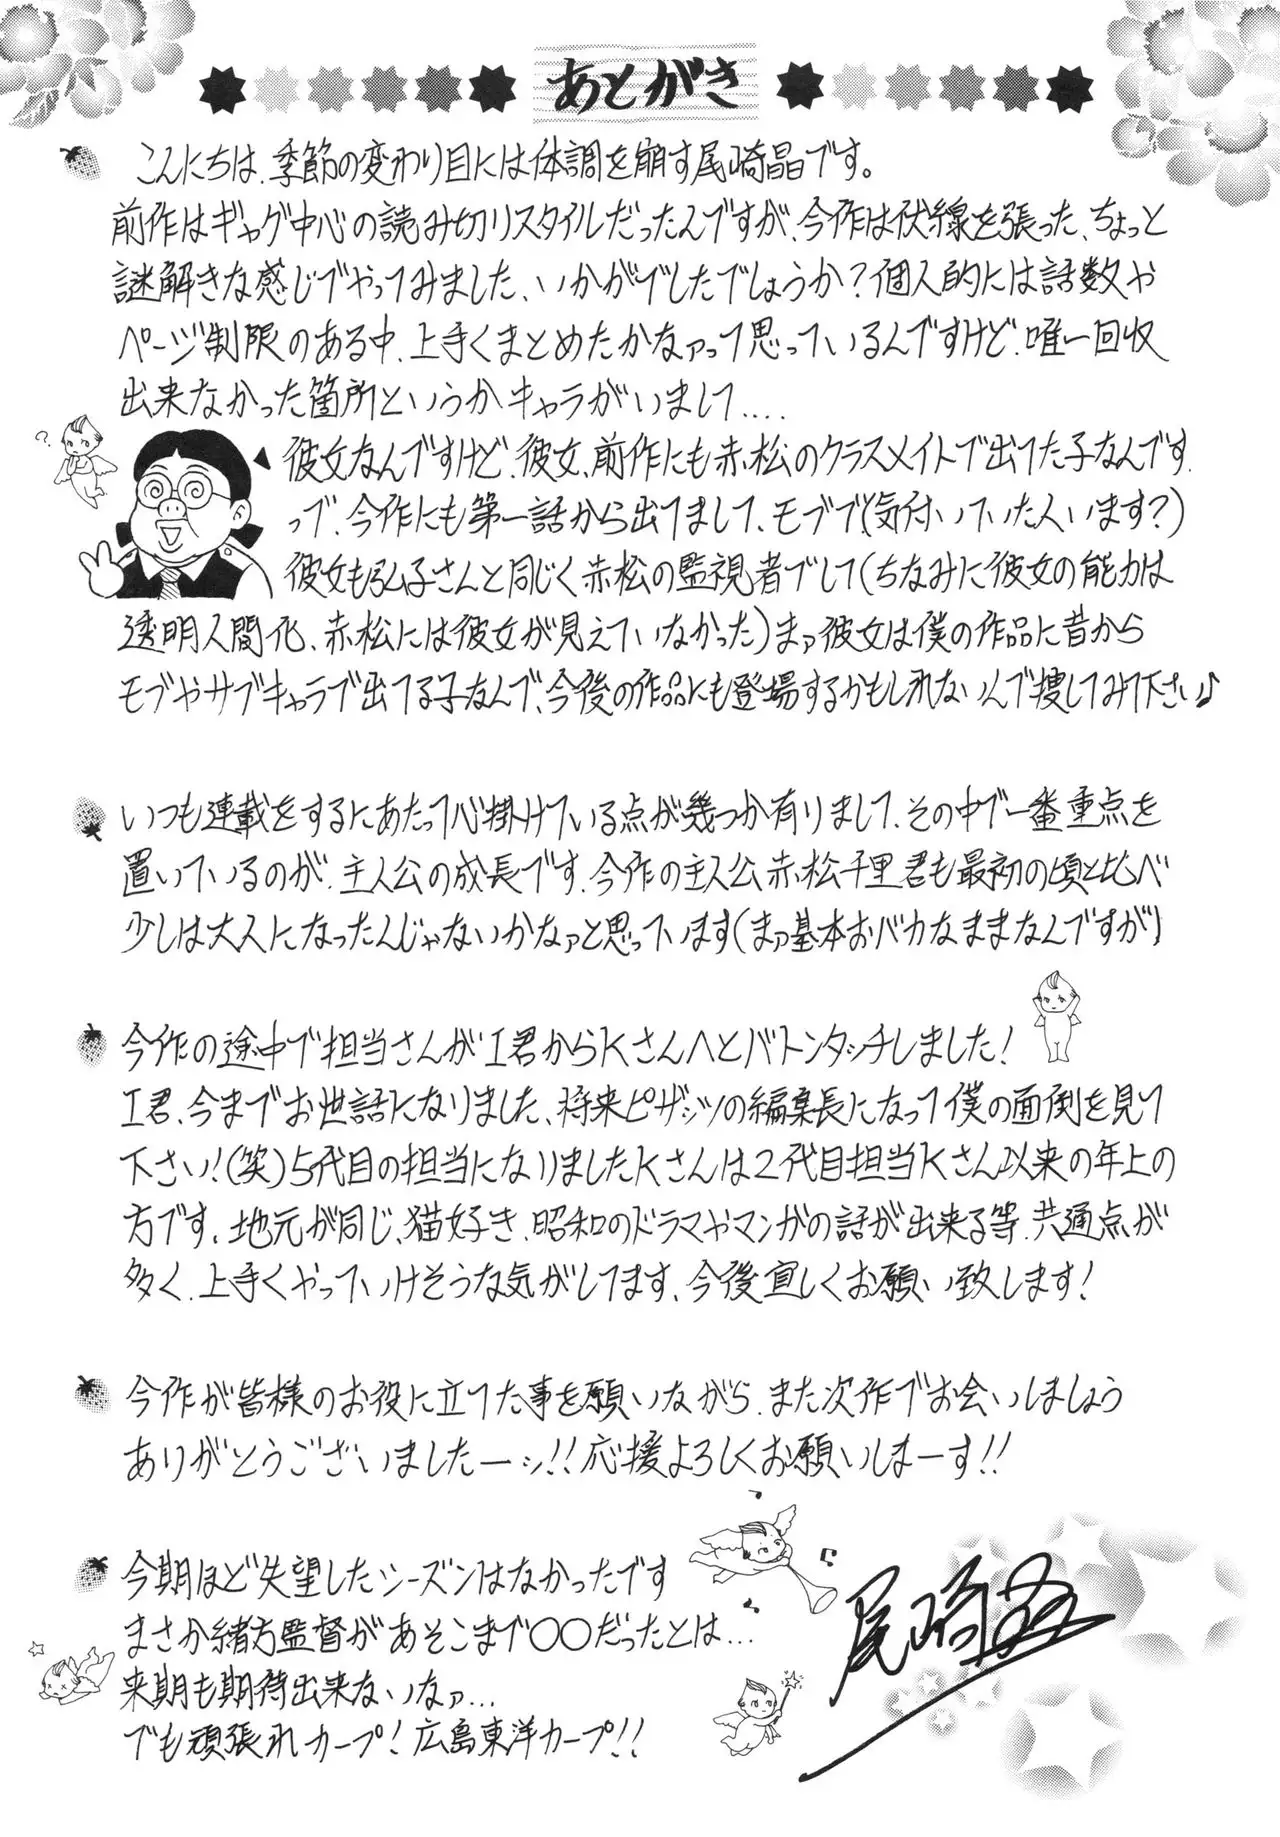 あとがき
こんにちは、季節の変わり目には体調を崩す尾崎晶です。
前作はギャグ中心の読み切りスタイルだったんですが、今作は伏線を張った、ちょっと
謎解きな感じでやってみました、いかがでしたでしょうか?個人的には話数や
ページ制限のある中、上手くまとめたかなァって思っているんですけど、唯一回収
出来なかった箇所というかキャラがいまして....
彼女なんですけど、彼女、前作にも赤松のクラスメイトで出てた子なんです、
っで、今作にも第一話から出てまして、モブで(気付いていた人います?)
彼女も弘子さんと同じく赤松の監視者でして(ちなみに彼女の能力は
透明人間化、赤松には彼女が見えていなかった)まァ彼女は僕の作品に昔から
モブやサブキャラで出てる子なんで、今後の作品にも登場するかもしれないんで捜してみて下さい♪
いつも連載をするにあたって心掛けている点が幾つか有りまして、その中で一番重点を
置いているのが、主人公の成長です、今作の主人公赤松千里君も最初の頃と比べ
少しは大人になったんじゃないかなァと思っています(まァ基本おバカなままなんですが)
今作の途中で担当さんがI君からKさんへとバトンタッチしました!
I君、今までお世話になりました、将来ピザッツの編集長になって僕の面倒を見て
下さい!(笑)5代目の担当になりましたKさんは2代目担当Kさん以来の年上の
方です、地元が同じ、猫好き、昭和のドラマやマンガの話が出来る等、共通点が
多く、上手くやっていけそうな気がしてます、今後宜しくお願い致します!
今作が皆様のお役に立てた事を願いながら、また次作でお会いしましょう
ありがとうございましたーッ!!応援よろしくお願いしまーす!!
今期ほど失望したシーズンはなかったです
まさか緒方監督があそこまで〇〇だったとは...
来期も期待出来ないなァ...
でも頑張れカープ!広島東洋カープ!!
尾崎晶